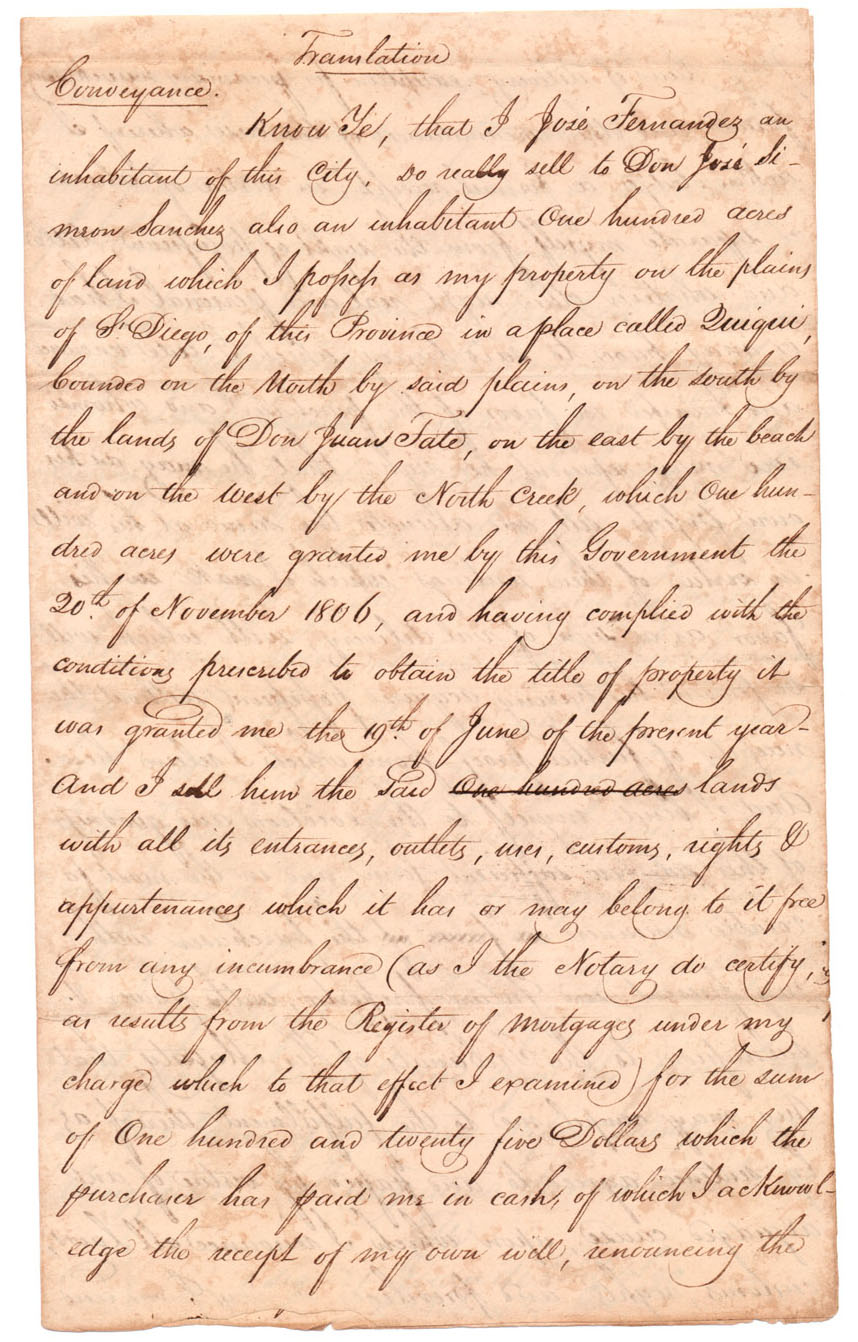 Translation
Conveyance.
Know Ye, that I José Fernandez an
inhabitant of this City, do really sell to Don José Si-
meon Sanchez also an inhabitant One hundred acres
of land which I possess as my property on the plains
of St. Diego, of this Province in a place called Quiqui,
bounded on the North by said plains, on the south by
the lands of Don Juan Tate, on the east by the beach
and on the west by the North Creek, which One hun-
dred acres were granted me by this Government the
20th. of November 1806, and having complied with the
conditions prescribed to obtain the title of property it
was granted me the 19th. of June of the present year-
And I sell him the said One hundred acres lands
with all its entrances, outlets, uses, customs, rights &
appurtenances which it has or may belong to it free
from any incumbrance (as I the Notary do certify,
as results from the Register of Mortgages under my
charge which to that effect I examined) for the sum
of One hundred and twenty five Dollars which the
purchaser has paid me in cash, of which I acknowl-
edge the receipt of my own will, renouncing the